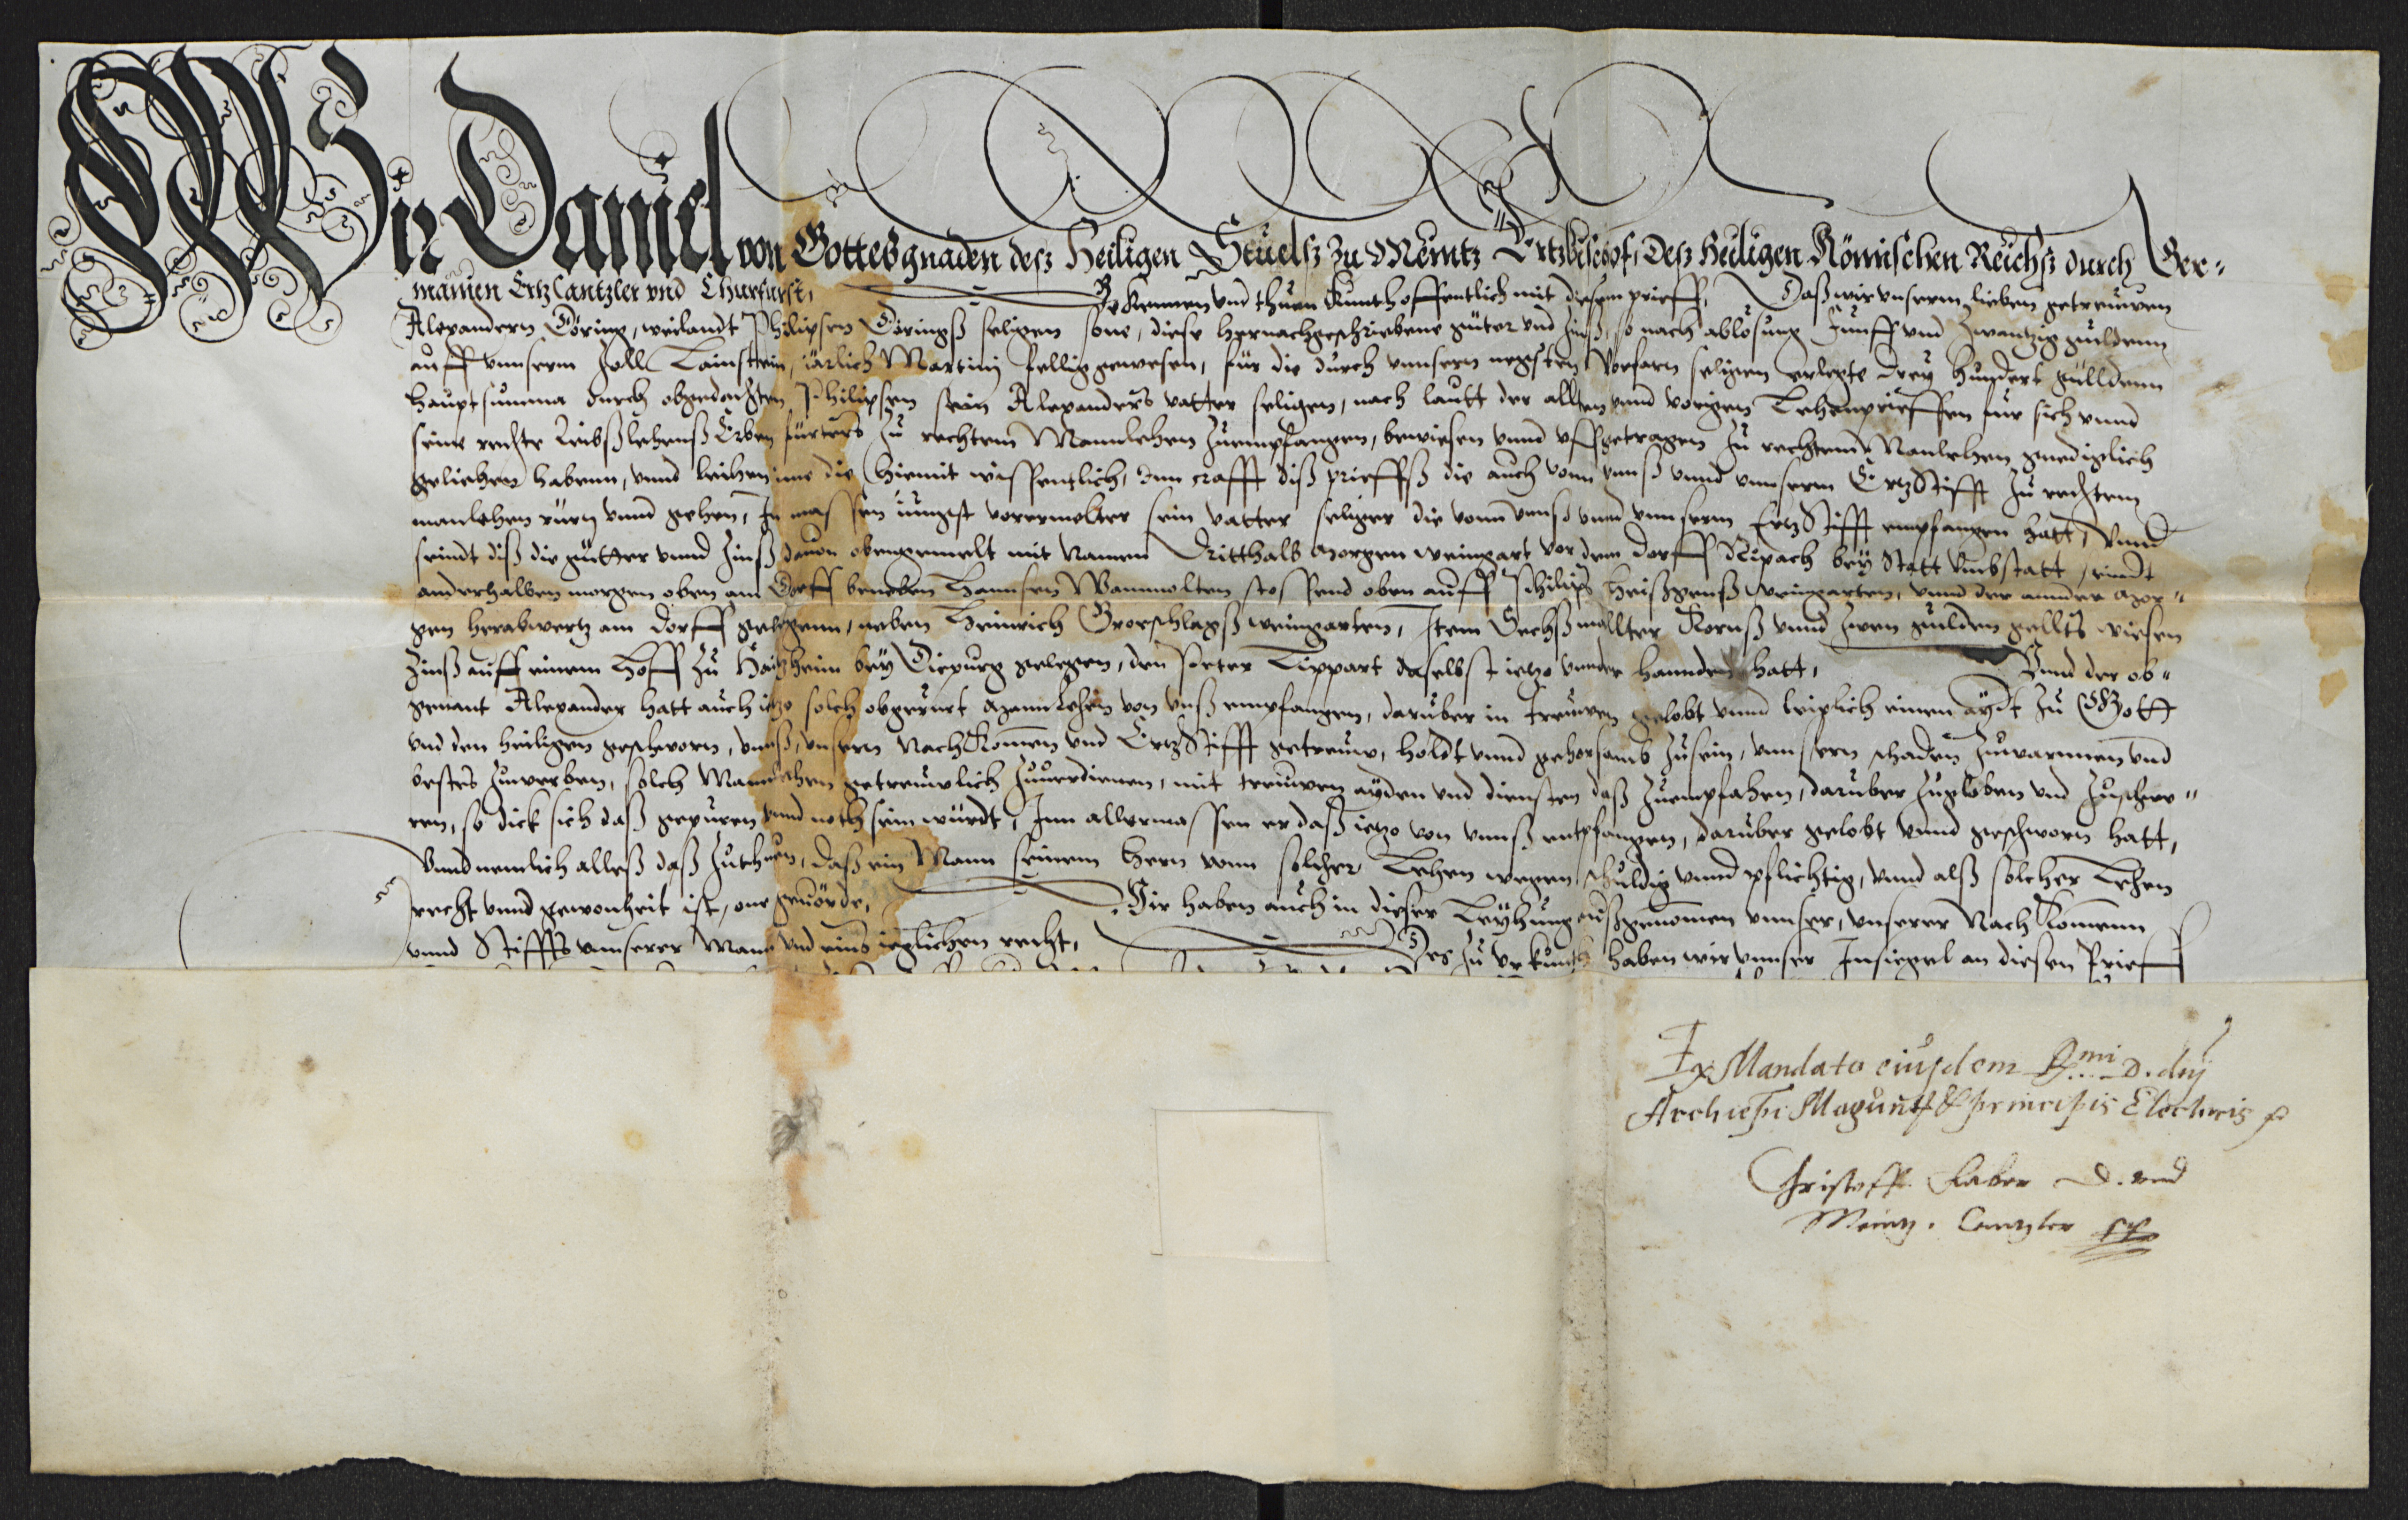 Wir Daniel von Gottes gnaden desz Heiligen Stuelsz zu Meintz Ertzbischof, Desz Heiligen Römischen Reichsz durch Ger-
manien Ertz Cantzler vnd Churfurst, Bekennen vnd thuen Kunth offentlich mit diesem prieff, Daß wir vnserm lieben getreuwen
Alexandern Döring, weilandt Philipsen Dörings seligen sone, diese hernachgeschriebene güter vnd Zinß, so nach ablösung Fünff vnd Zwantzig guldenn
auff vnnserm Zoll Lainstein, iärlich Martinj fellig gewesen, für die durch vnnsern negsten Vorfarn seligen erlegte Drey hundert gülldenn
hauptsumma durch obgedachten Philipsen sein Alexanders vatter seligen, nach lautt der allten vnnd vorigen Lehenprieffen für sich vnnd
seine rechte Leibßlehenß Erben fürters zu rechtem Mannlehen zuempfangen, bewiesen vnnd vffgetragen zu rechtem Manlehen gnediglich
geliehen habenn, vnnd leihen ime die hiemit wissentlich, inn crafft diß prieffß die auch vonn vnnß vnnd vnnserm Ertz Stifft zu rechtem
manlehen rürn vnnd gehen, In massen iüngst vorermelter sein vatter seliger die vonn vnnß vnnd vnnserm Ertz Stifft empfangen hatt, Vnnd
seindt diß die gütter vnnd Zinß dauon obengemelt mit Namen Dritthalb morgen weingart vor dem dorff Ripach bey Statt Vmbstatt, eindt
anderhalben morgen oben am Dorff beneben Hannsen Wammolten stossend oben auff Philips weingarten, vnnd der annder mor-
gen herabwertz am dorff gelegenn, neben Heinrich Grorschlagß weingarten, Item Sechß mallter Kornß vnnd zwen gulden gellts wiesen
Zinß auff einem Hoff zu Hartzheim bey Diepurg gelegen, den Peter Lippart daselbst ietzo vnnder hannden hatt, Vnnd der ob-
genant Alexander hatt auch ietzo solch obgerürt Mannlehen von vnß empfangen, darüber in treuwen gelobt vnnd leiplich einen aydt zu Gott
vnd den heiligen geschworn, vnnß, vnsern Nachkommen vnd Ertz Stifft getreuw, holdt vnnd gehorsamb zusein, vnnsern schaden zuwarnnen vnd
bestes zuwerben, solch Mannlehen getreuwlich zuuerdienen, mit treuwen ayden vnd diensten daß zuempfahen, darüber zugloben vnd zuschwe-
ren, so dick sich daß gepüren vnnd noth sein würdt, Inn allermassen er daß ietzo von vnnß entpfangen, darüber gelobt vnnd geschworn hatt,
Vnnd nemlich alleß daß zuthuen, daß ein Mann seinem Hern von solcher Lehen wegen schuldig vnnd pflichtig, vnnd alß solcher Lehen
recht vnnd gewonheit ist, one geuörde, Wir haben auch in dieser Leyhung außgenommen vnnser, vnserer Nach Komenn
vnnd Stiffts vnnserer Mann vnd eins ieglichen recht, Des zu vrkunth haben wir vnnser Insiegel an diesen Prieff
Ex Mandato eiusdem Rmi D. dnj
Archiepi Magunt & principis Electoris
Christoff Faber D. vnd
Meintz. Cantzler